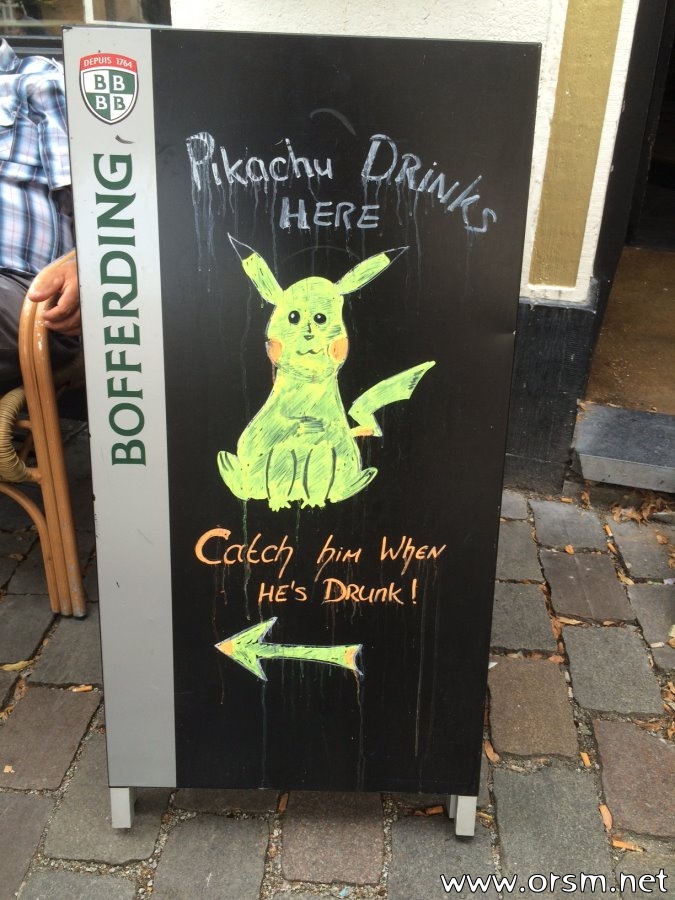 DEPUIS 1764
B B
B B
BOFFERDING
Pikachu DRINKS
HERE
Catch him When
HE'S DRUNK!
www.orsm.net